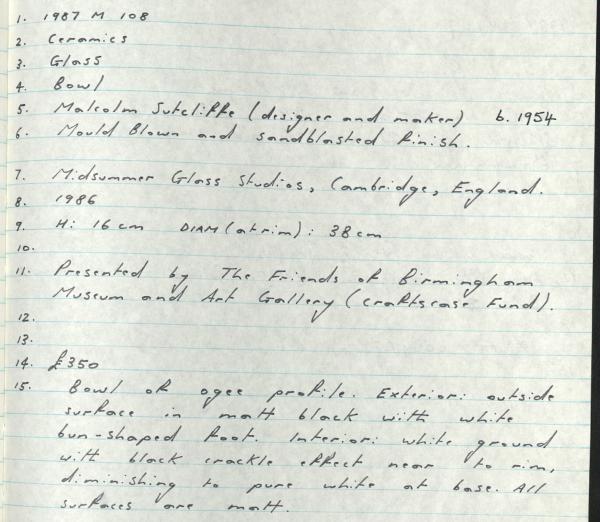 1. 1987 M 108
2. Ceramics
3. Glass
4. Bowl
5. Malcolm Sutcliffe (designer and maker) b. 1954
6. Mould Blown and sandblasted finish.
7. Midsummer Glass Studios, Cambridge, England.
8. 1986
9. H: 16cm DIAM (at rim): 38cm
10.
11. Presented by The Friends of Birmingham
Museum and Art Gallery (craftscase Fund).
12.
13.
14. £350
15. Bowl of ogee profile. Exterior: outside
surface in matt black with white
bun-shaped foot. Interior: white ground
with black crackle effect near to rim,
diminishing to pure white at base. All
surfaces are matt.